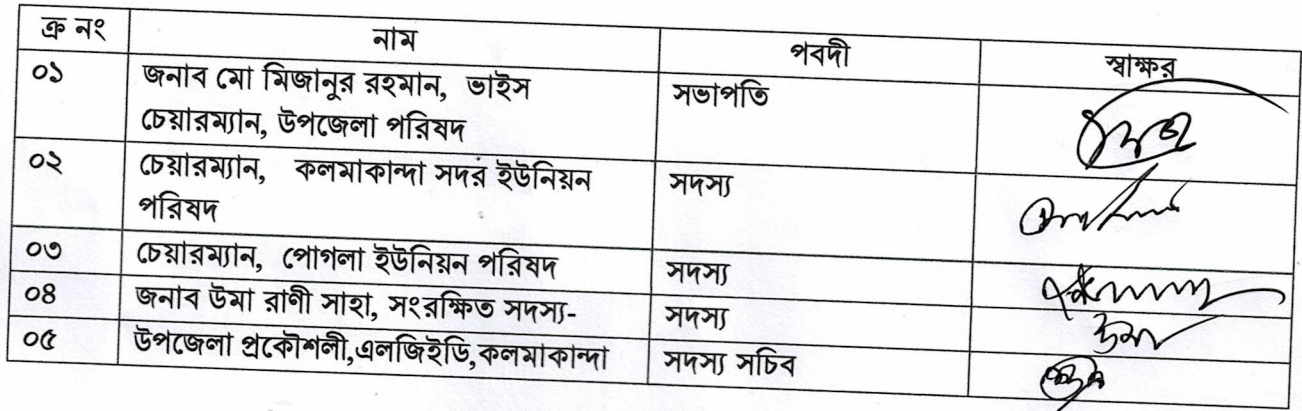 ক্র নং নাম পবদী স্বাক্ষর
০১ জনাব মো মিজানুর রহমান, ভাইস সভাপতি
চেয়ারম্যান, উপজেলা পরিষদ
০২ চেয়ারম্যান, কলমাকান্দা সদর ইউনিয়ন সদস্য
পরিষদ
০৩ চেয়ারম্যান, পোগলা ইউনিয়ন পরিষদ সদস্য
০৪ জনাব উমা রাণী সাহা, সংরক্ষিত সদস্য- সদস্য
উমা
০৫ উপজেলা প্রকৌশলী,এলজিইডি,কলমাকান্দা সদস্য সচিব